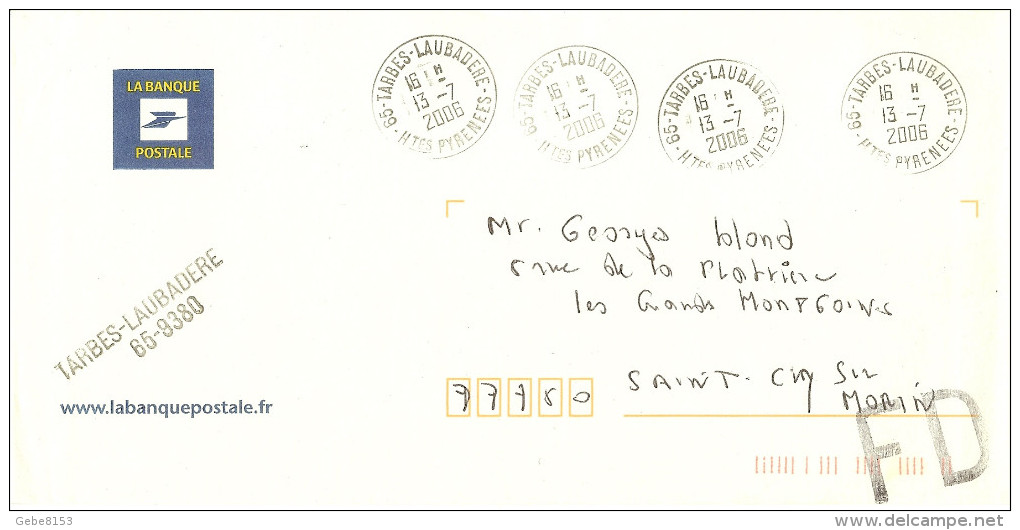 LA BANQUE
POSTALE
65-TARBES-LAUBADERE-
16 H
13 -7
2006
HTES PYRENEES
65-TARBES-LAUBADERE-
16 H
13 -7
2006
HTES PYRENEES
65-TARBES-LAUBADERE-
16 H
13 -7
2006
HTES PYRENEES
65-TARBES-LAUBADERE-
16 H
13 -7
2006
HTES PYRENEES
Mr. Georges blond
rue de la Platrière
les Grands Montgoins
77750
SAINT-Cyr Sur
MORIN
TARBES-LAUBADERE
65-9380
www.labanquepostale.fr
FD
Gebe8153
www.delcampe.net